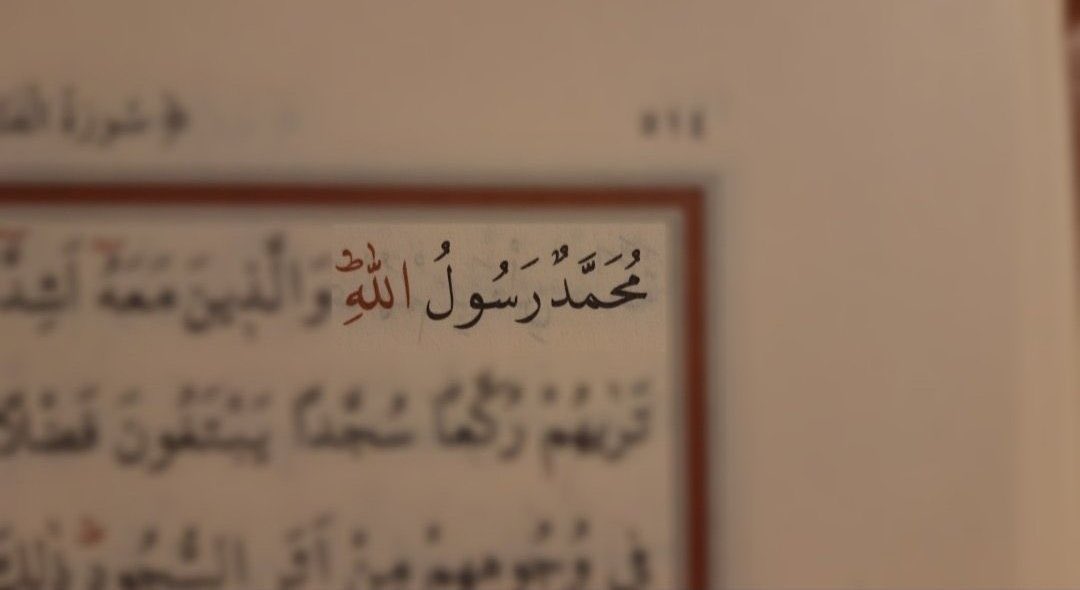 ﴿سورة الفتح ٥١٤
مُحَمَّدٌ رَسُولُ اللّٰهِؕ وَالَّذينَ مَعَهُٓ اَشِدَّٓاءُ
تَرٰيهُمْ رُكَّعاً سُجَّداً يَبْتَغُونَ فَضْلاً
في وُجُوهِهِمْ مِنْ اَثَرِ السُّجُودِؕ ذٰلِكَ